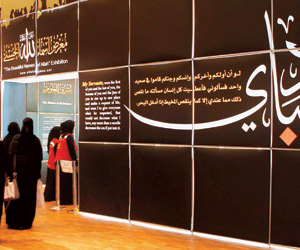 معرض أسماء الله الحسنى
"The Beautiful Names of Allah" Exhibition
My Servants, were the first
of you and the last of you,
the human of you and the jinn of
you to rise up in one place
and make a request of Me,
and were I to give everyone
what he requested, that
would not decrease what I
have, any more than a needle
decreases the sea if put into it.
لو أن أولكم وآخركم وإنسكم وجنكم قاموا في صعيد
واحد فسألوني فأعطيت كل إنسان مسألته ما نقص
ذلك مما عندي إلا كما ينقص المخيط إذا أدخل البحر.